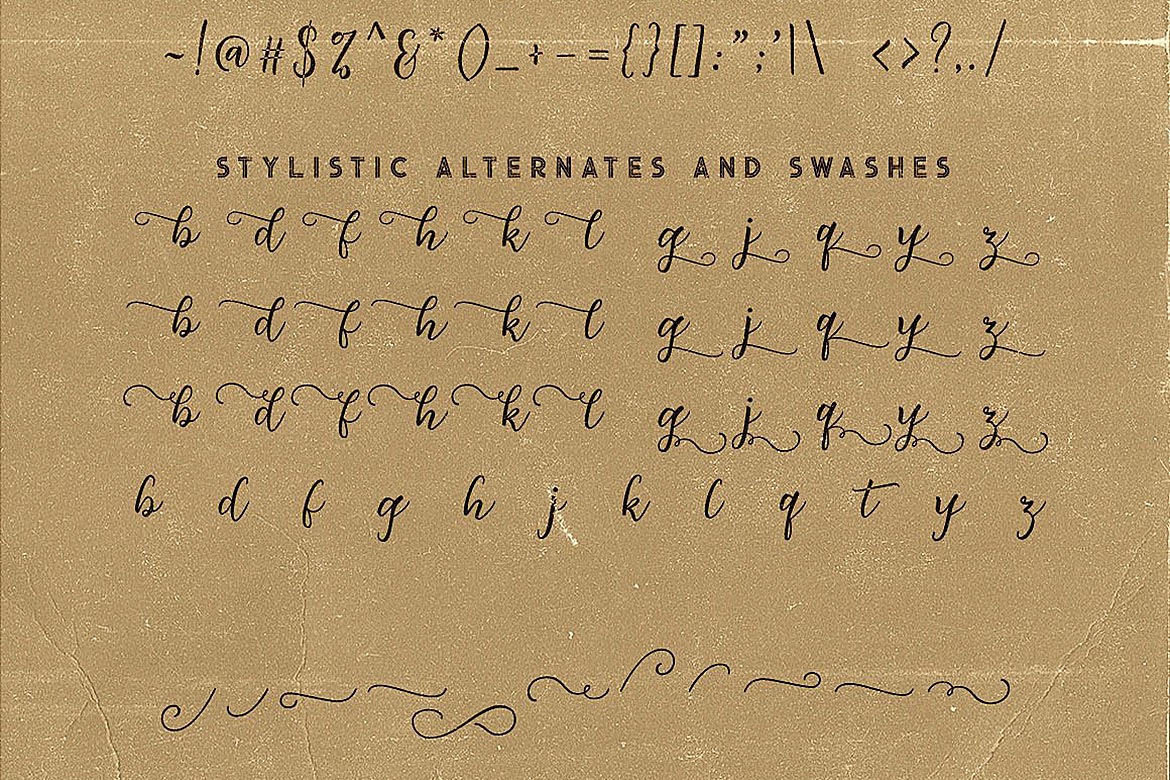 ~!@#$%^&*()_+-={}[]:";'|\ <>?,./
STYLISTIC ALTERNATES AND SWASHES
b d f h k l g j q y z
b d f h k l g j q y z
b d f h k l g j q y z
b d f g h j k l q t y z